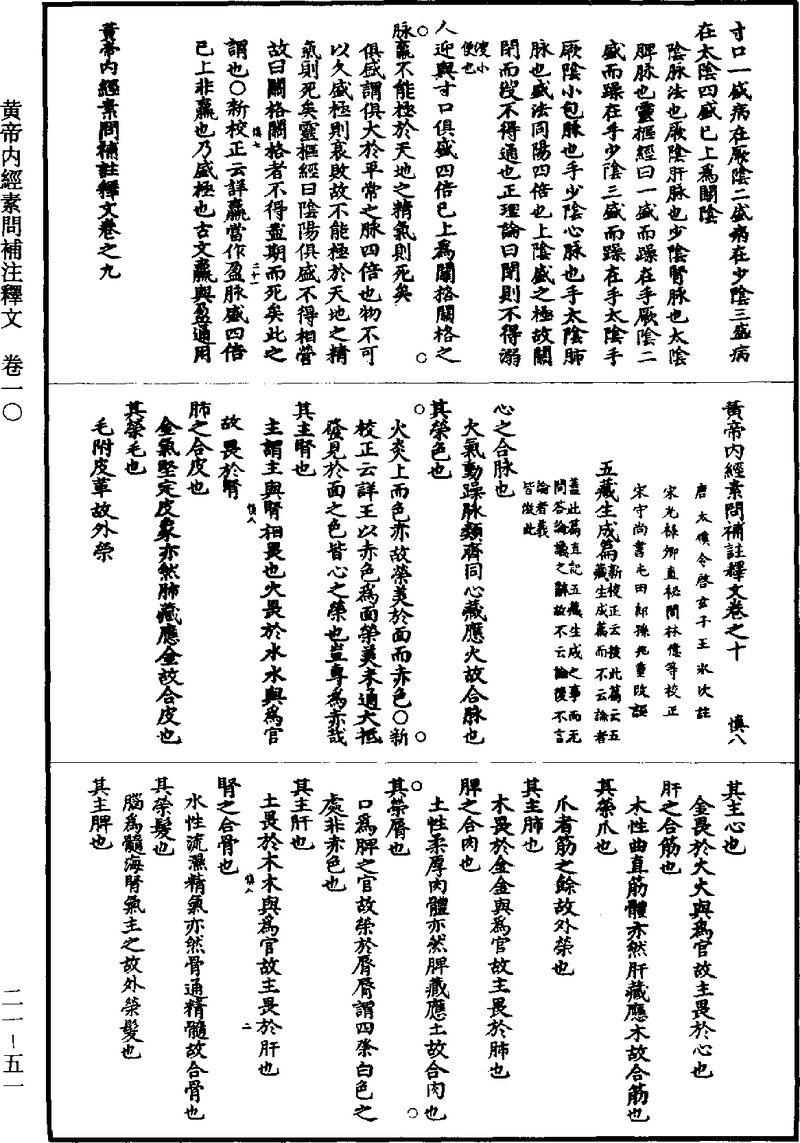 寸口一盛病在厥陰二盛病在少陰三盛病
在太陰四盛已上爲關陰
陰脉法也厥陰肝脉也少陰腎脉也太陰
脾脉也靈樞經曰一盛而躁在手厥陰二
盛而躁在手少陰三盛而躁在手太陰手
厥陰小包脉也手少陰心脉也手太陰肺
脉也盛法同陽四倍也上陰盛之極故關
閉而溲不得通也正理論曰閉則不得溺
溲小
便也
人迎與寸口俱盛四倍已上爲關格關格之
脉羸不能極於天地之精氣則死矣
俱盛謂俱大於平常之脉四倍也物不可
以久盛極則衰敗故不能極於天地之精
氣則死矣靈樞經曰陰陽俱盛不得相營
故曰關格關格者不得盡期而死矣此之
慎七
二十一
謂也○新校正云詳羸當作盈脉盛四倍
已上非羸也乃盛極也古文羸與盈通用
黃帝內經素問補註釋文卷之九
黃帝內經素問補註釋文卷之十 慎八
唐太僕令啓玄子王冰次註
宋光祿卿直秘閣林億等校正
宋守尚書屯田郎孫兆重改誤
五藏生成篇
新校正云按此篇云五
藏生成篇而不云論者
蓋此篇直記五藏生成之事而无
問答論議之辭故不云論後不言
論者義
皆倣此
心之合脉也
火氣動躁脉類齊同心藏應火故合脉也
其榮色也
火炎上而色赤故榮美於面而赤色○新
校正云詳王以赤色爲面榮美未通大抵
發見於面之色皆心之榮也豈專爲赤哉
其主腎也
主謂主與腎相畏也火畏於水水與爲官
故畏於腎
慎八
肺之合皮也
金氣堅定皮象亦然肺藏應金故合皮也
其榮毛也
毛附皮革故外榮
其主心也
金畏於火火與爲官故主畏於心也
肝之合筋也
木性曲直筋體亦然肝藏應木故合筋也
其榮爪也
爪者筋之餘故外榮也
其主肺也
木畏於金金與爲官故主畏於肺也
脾之合肉也
土性柔厚肉體亦然脾藏應土故合肉也
其榮脣也
口爲脾之官故榮於脣脣謂四際白色之
處非赤色也
其主肝也
土畏於木木與爲官故主畏於肝也
慎八
二
腎之合骨也
水性流濕精氣亦然骨通精髓故合骨也
其榮髮也
腦爲髓海腎氣主之故外榮髮也
其主脾也
黄帝内經素問補注釋文 卷一〇
二一－五一